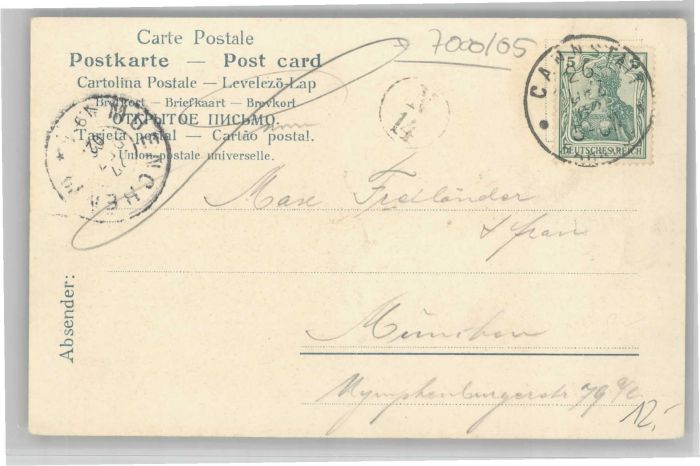 Carte Postale
Postkarte — Post card
Cartolina Postale — Levelező-Lap
Brevkort — Briefkaart — Brevkort
ОТКРЫТОЕ ПИСЬМО.
Tarjeta postal — Cartão postal.
Union postale universelle.
7000/05
CANNSTATT
5
DEUTSCHES REICH
MUENCHEN
Max Friedländer
& frau
München
Nymphenburgerstr 79
Absender:
12,-